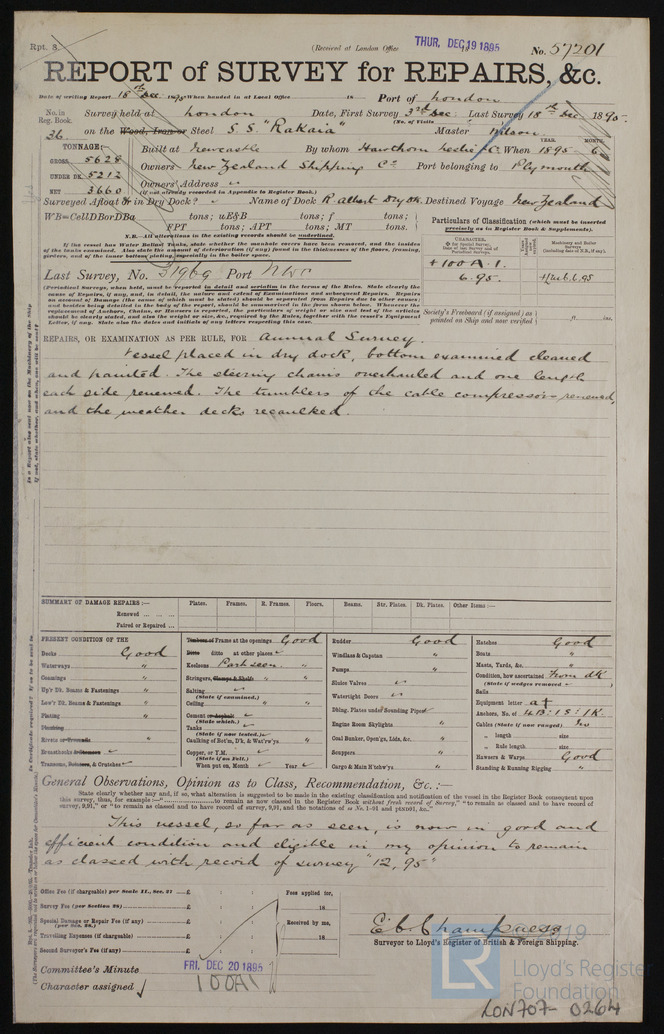 Rpt. 8.
(Received at London Office
THUR. DEC 19 1895
No. 57201
REPORT of SURVEY for REPAIRS, &c.
Date of writing Report 18th Dec 1895 When handed in at Local Office 18 Port of London
No. in Reg. Book.
Survey held at London Date, First Survey 3rd Dec Last Survey 18th Dec 1895
(No. of Visits
36 on the Wood, Iron or Steel S.S. "Rakaia" Master Wilson
TONNAGE:
Built at Newcastle By whom Hawthorn Leslie & C. When 1895 - 6
YEAR. MONTH.
GROSS 5628
Owners New Zealand Shipping Co Port belonging to Plymouth
UNDER DK. 5212
Owners' Address
NET 3660
(if not already recorded in Appendix to Register Book.)
Surveyed Afloat or in Dry Dock? Name of Dock R Albert Dry dk. Destined Voyage New Zealand
WB=CellDBorDBa tons; uE&B tons; f tons;
FPT tons; APT tons; MT tons.
N.B.—All alterations in the existing records should be underlined.
If the vessel has Water Ballast Tanks, state whether the manhole covers have been removed, and the insides
of the tanks examined. Also state the amount of deterioration (if any) found in the thicknesses of the floors, framing,
girders, and of the inner bottom plating, especially in the boiler space.
Particulars of Classification (which must be inserted
precisely as in Register Book & Supplements).
CHARACTER,
Machinery and Boiler Surveys
+ 100 A. 1.
6.95.
Last Survey, No. Port Nwc
(Periodical Surveys, when held, must be reported in detail and seriatim in the terms of the Rules. State clearly the
cause of Repairs, if any, and, in detail, the nature and extent of Examinations and subsequent Repairs. Repairs
on account of Damage (the cause of which must be stated) should be separated from Repairs due to other causes;
and besides being detailed in the body of the report, should be summarised in the form shown below. Whenever the
replacement of Anchors, Chains, or Hawsers is reported, the particulars of weight or size and test of the articles
should be clearly stated, and also the weight or size, &c., required by the Rules, together with the vessel's Equipment
Letter, if any. State also the dates and initials of any letters respecting this case.
Society's Freeboard (if assigned) as
painted on Ship and now verified ft. ins.
REPAIRS, OR EXAMINATION AS PER RULE, FOR Annual Survey.
Vessel placed in dry dock, bottom examined cleaned
and painted. The steering chains overhauled and one length
each side renewed. The tumblers of the cable compressors renewed,
and the weather decks recaulked
SUMMARY OF DAMAGE REPAIRS :—
Plates. Frames. R. Frames. Floors. Beams. Str. Plates. Dk. Plates. Other Items :—
Renewed
Faired or Repaired
PRESENT CONDITION OF THE
Decks Good
Waterways "
Coamings "
Up'r Dk. Beams & Fastenings "
Low'r Dk. Beams & Fastenings "
Plating "
Planking
Rivets or Treenails "
Breasthooks & Sternson
Transoms, Pointers, & Crutches
Timbers or Frame at the openings Good
Ditto ditto at other places
Keelsons Part seen.
Stringers, Clamps & Shelfs
Salting
(State if examined.)
Ceiling
Cement or Asphalt
(State which.)
Tanks
(State if now tested.)
Caulking of Bot'm, D'k, & Wat'rw'ys
Copper, or Y.M.
(State if on Felt.)
When put on, Month Year
Rudder Good
Windlass & Capstan "
Pumps "
Sluice Valves
Watertight Doors
Dblng. Plates under Sounding Pipes
Engine Room Skylights "
Coal Bunker, Open'gs, Lids, &c. "
Scuppers "
Cargo & Main H'tchw'ys "
Hatches Good
Boats "
Masts, Yards, &c. "
Condition, how ascertained From dk
(State if wedges removed
Sails
Equipment letter at
Anchors, No. of 4B: 1S: 1K
Cables (State if now ranged) No
" length size
" Rule length size
Hawsers & Warps Good
Standing & Running Rigging "
General Observations, Opinion as to Class, Recommendation, &c. :—
State clearly whether any, and if so, what alteration is suggested to be made in the existing classification and notification of the vessel in the Register Book consequent upon
this survey, thus, for example :—" to remain as now classed in the Register Book without fresh record of Survey," "to remain as classed and to have record of
survey, 9,91," or "to remain as classed and to have record of survey, 9,91, and the notations of ss No. 1-91 and ptnn91, &c."
This vessel, so far as seen, is now in good and
efficient condition and eligible in my opinion to remain
as classed with record of survey "12, 95"
Office Fee (if chargeable) per Scale II., Sec. 27 £
Survey Fee (per Section 28) £
Special Damage or Repair Fee (if any) £
(per Sec. 28.)
Travelling Expenses (if chargeable) £
Second Surveyor's Fee (if any) £
Fees applied for,
18
Received by me,
18
E. C. Champness
Surveyor to Lloyd's Register of British & Foreign Shipping.
Committee's Minute
FRI. DEC 20 1895
Character assigned 100A1
Lloyd's Register
Foundation
LON707-0264